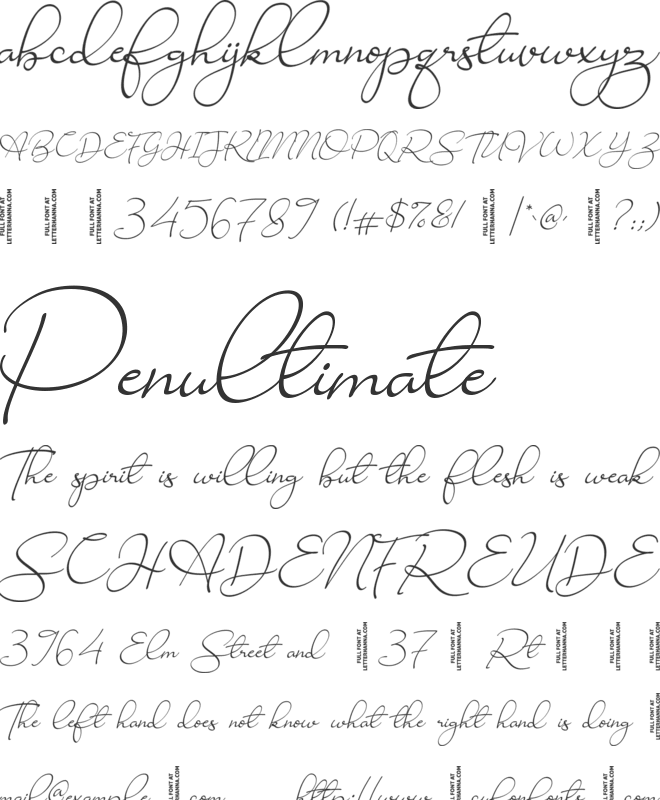 abcdefghijklmnopqrstuvwxyz
ABCDEFGHIJKLMNOPQRSTUVWXYZ
FULL FONT AT LETTERHANNA.COM FULL FONT AT LETTERHANNA.COM FULL FONT AT LETTERHANNA.COM 3456789 (!#$%&/ FULL FONT AT LETTERHANNA.COM |*`@, FULL FONT AT LETTERHANNA.COM ?:;)
Penultimate
The spirit is willing but the flesh is weak
SCHADENFREUDE
3964 Elm Street and FULL FONT AT LETTERHANNA.COM 37 FULL FONT AT LETTERHANNA.COM Rt FULL FONT AT LETTERHANNA.COM FULL FONT AT LETTERHANNA.COM FULL FONT AT LETTERHANNA.COM
The left hand does not know what the right hand is doing FULL FONT AT LETTERHANNA.COM
mail@example FULL FONT AT LETTERHANNA.COM com http://www FULL FONT AT LETTERHANNA.COM cufonfonts FULL FONT AT LETTERHANNA.COM com